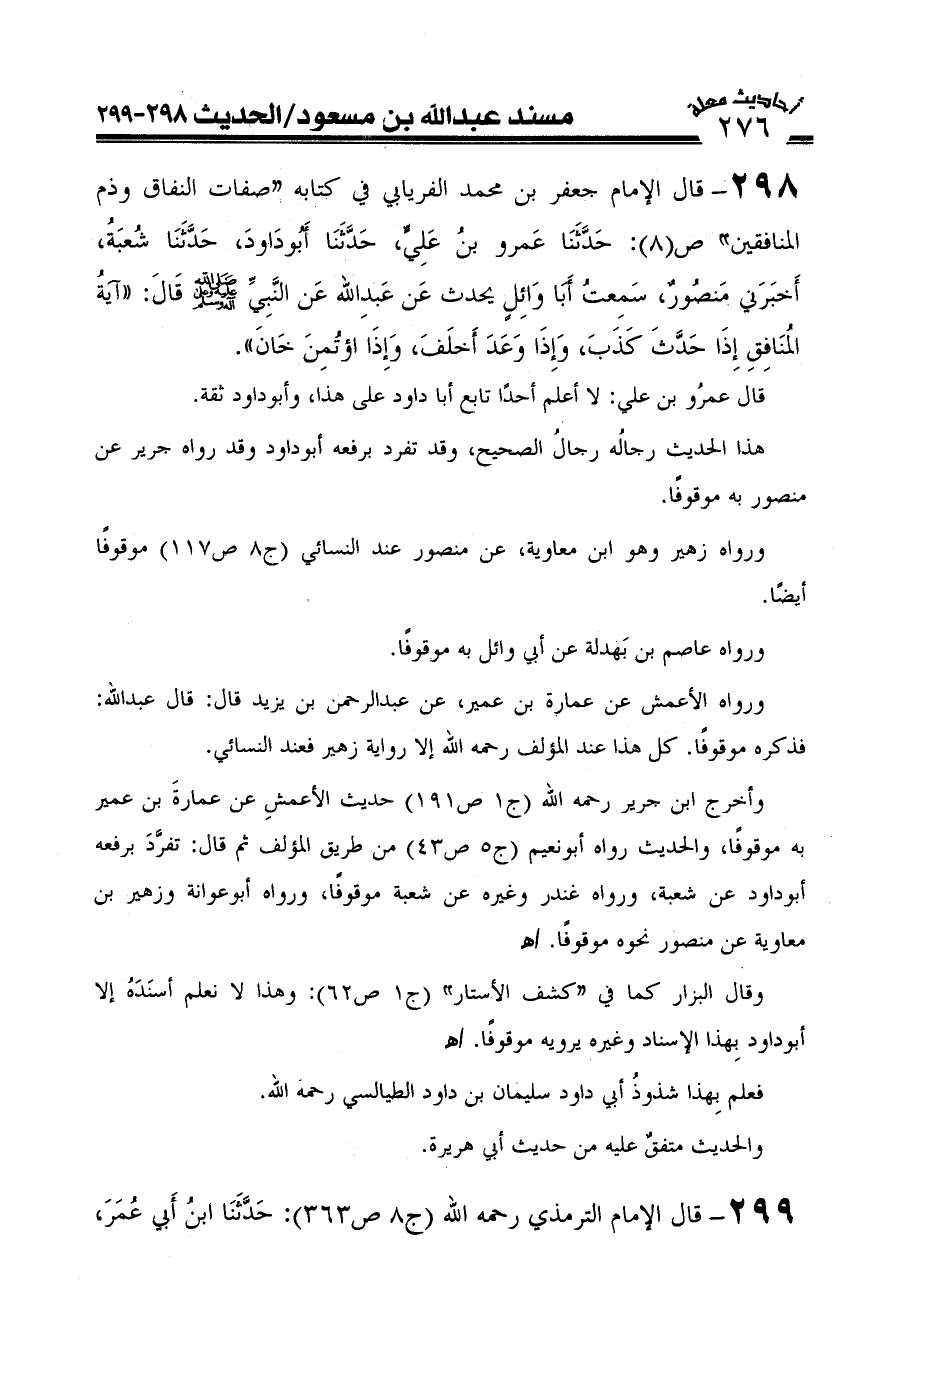 أحاديث معلة
٢٧٦
مسند عبدالله بن مسعود/الحديث ٢٩٨-٢٩٩
٢٩٨- قال الإمام جعفر بن محمد الفريابي في كتابه «صفات النفاق وذم
المنافقين» ص(٨): حَدَّثَنَا عَمرو بنُ عَلِيٍّ، حَدَّثَنَا أَبُودَاودَ، حَدَّثَنَا شُعبَةُ،
أَخبَرَنِي مَنصُورٌ، سَمِعتُ أَبَا وَائِلٍ يحدث عَن عَبدِالله عَن النَّبِيِّ ﷺ قَالَ: «آيَةُ
المُنَافِقِ إِذَا حَدَّثَ كَذَبَ، وَإِذَا وَعَدَ أَخلَفَ، وَإِذَا اؤتُمِنَ خَانَ».
قال عمرُو بن علي: لا أعلم أحدًا تابع أبا داود على هذا، وأبوداود ثقة.
هذا الحديث رجالُه رجالُ الصحيح، وقد تفرد برفعه أبوداود وقد رواه جرير عن
منصور به موقوفًا.
ورواه زهير وهو ابن معاوية، عن منصور عند النسائي (ج٨ ص١١٧) موقوفًا
أيضًا.
ورواه عاصم بن بَهدلة عن أبي وائل به موقوفًا.
ورواه الأعمش عن عمارة بن عمير، عن عبدالرحمن بن يزيد قال: قال عبدالله:
فذكره موقوفًا. كل هذا عند المؤلف رحمه الله إلا رواية زهير فعند النسائي.
وأخرج ابن جرير رحمه الله (ج١ ص١٩١) حديث الأعمشِ عن عمارةَ بن عمير
به موقوفًا، والحديث رواه أبونعيم (ج٥ ص٤٣) من طريق المؤلف ثم قال: تفرَّدَ برفعه
أبوداود عن شعبة، ورواه غندر وغيره عن شعبة موقوفًا، ورواه أبوعوانة وزهير بن
معاوية عن منصور نحوه موقوفًا. اﻫ
وقال البزار كما في «كشف الأستار» (ج١ ص٦٢): وهذا لا نعلم أسنَدَهُ إلا
أبوداود بِهذا الإسناد وغيره يرويه موقوفًا. اﻫ
فعلم بِهذا شذوذُ أبي داود سليمان بن داود الطيالسي رحمه الله.
والحديث متفقٌ عليه من حديث أبي هريرة.
٢٩٩- قال الإمام الترمذي رحمه الله (ج٨ ص٣٦٣): حَدَّثَنَا ابنُ أَبي عُمَرَ،